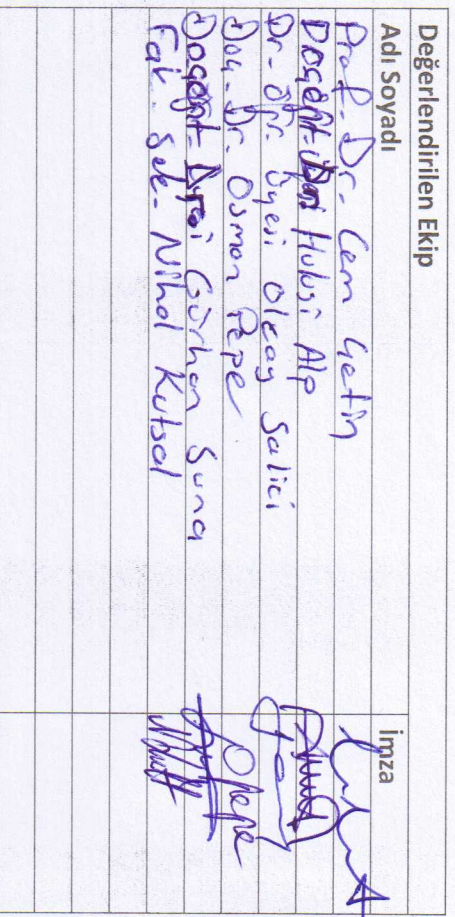 Değerlendirilen Ekip
Adı Soyadı İmza
Prof. Dr. Cem Çetin
Doçent Hulusi Alp
Dr. Öğr. Üyesi Olcay Salici
Doç. Dr. Osman Pepe OPepe
Doçent Gürhan Suna
Fak. Sek. Nihal Kutsal